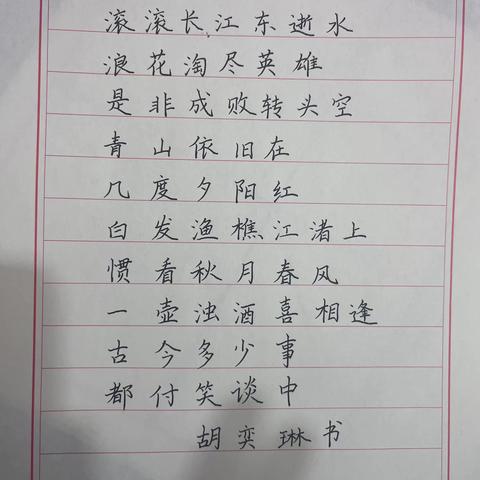 滚滚长江东逝水
浪花淘尽英雄
是非成败转头空
青山依旧在
几度夕阳红
白发渔樵江渚上
惯看秋月春风
一壶浊酒喜相逢
古今多少事
都付笑谈中
胡奕琳书